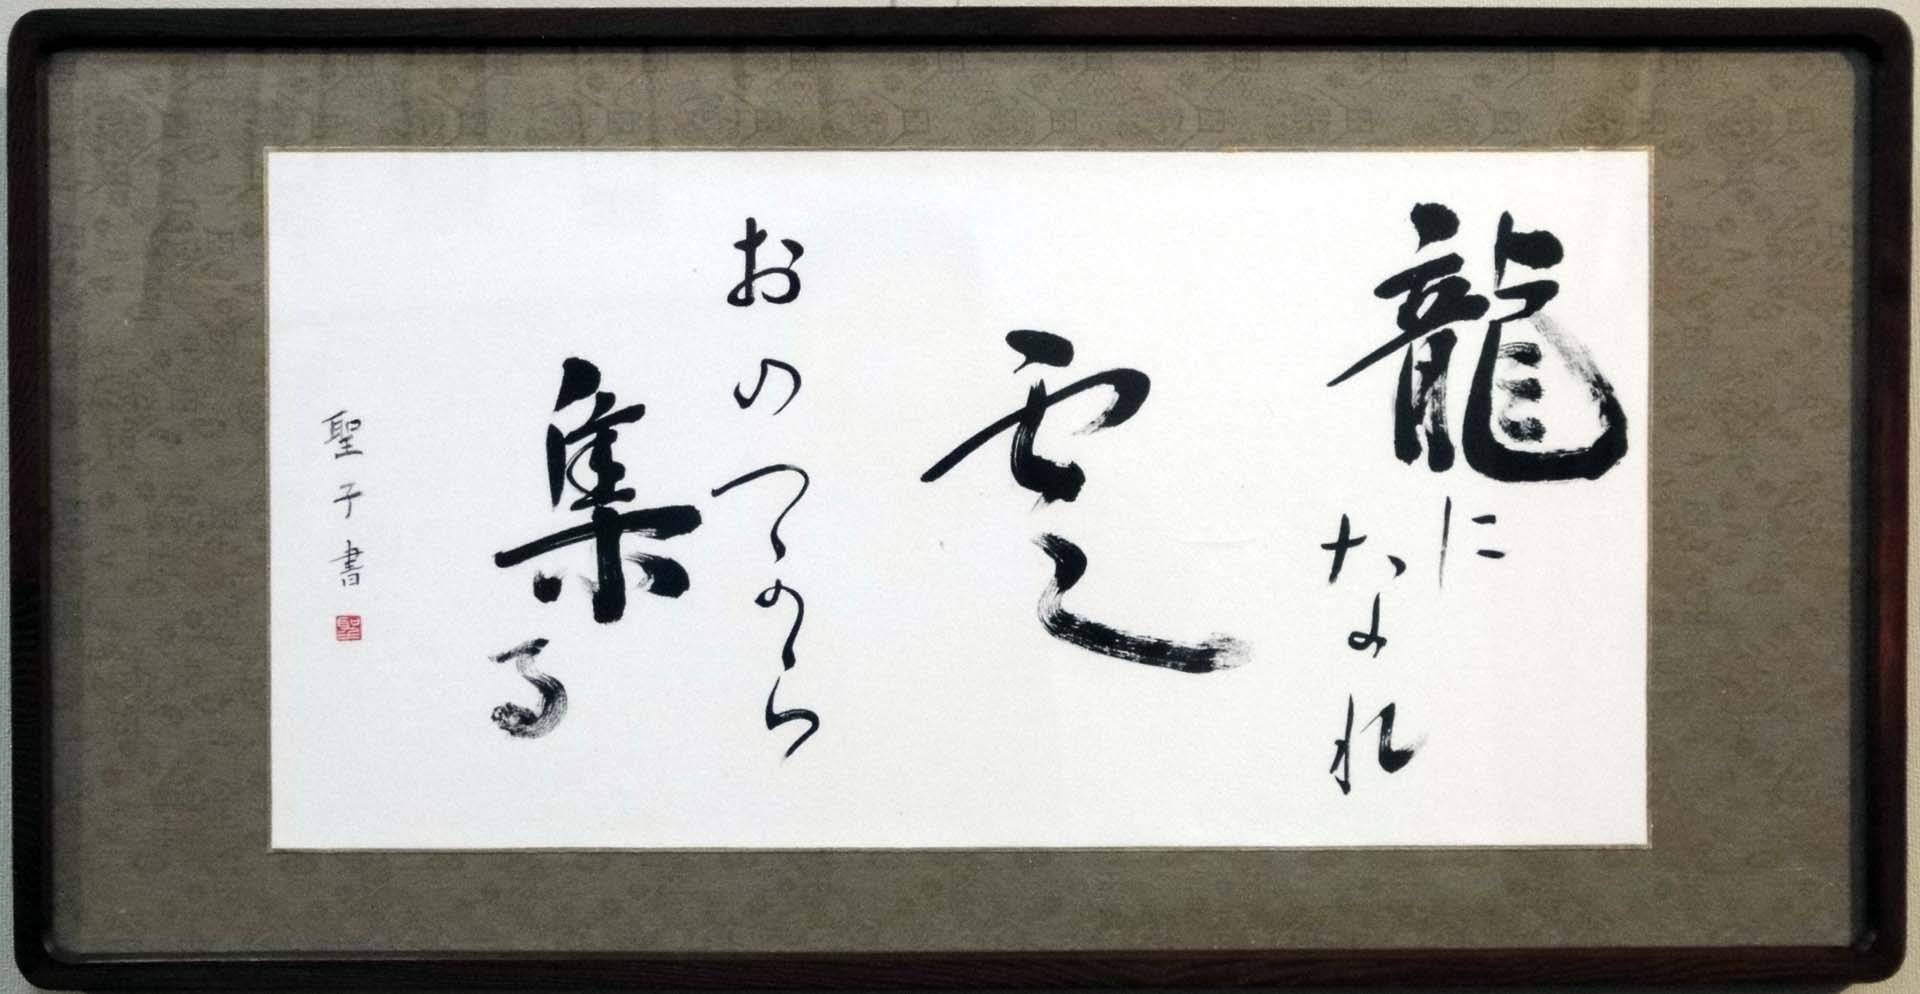 龍に
なれ
雲
おのづから
集る
聖子書
聖